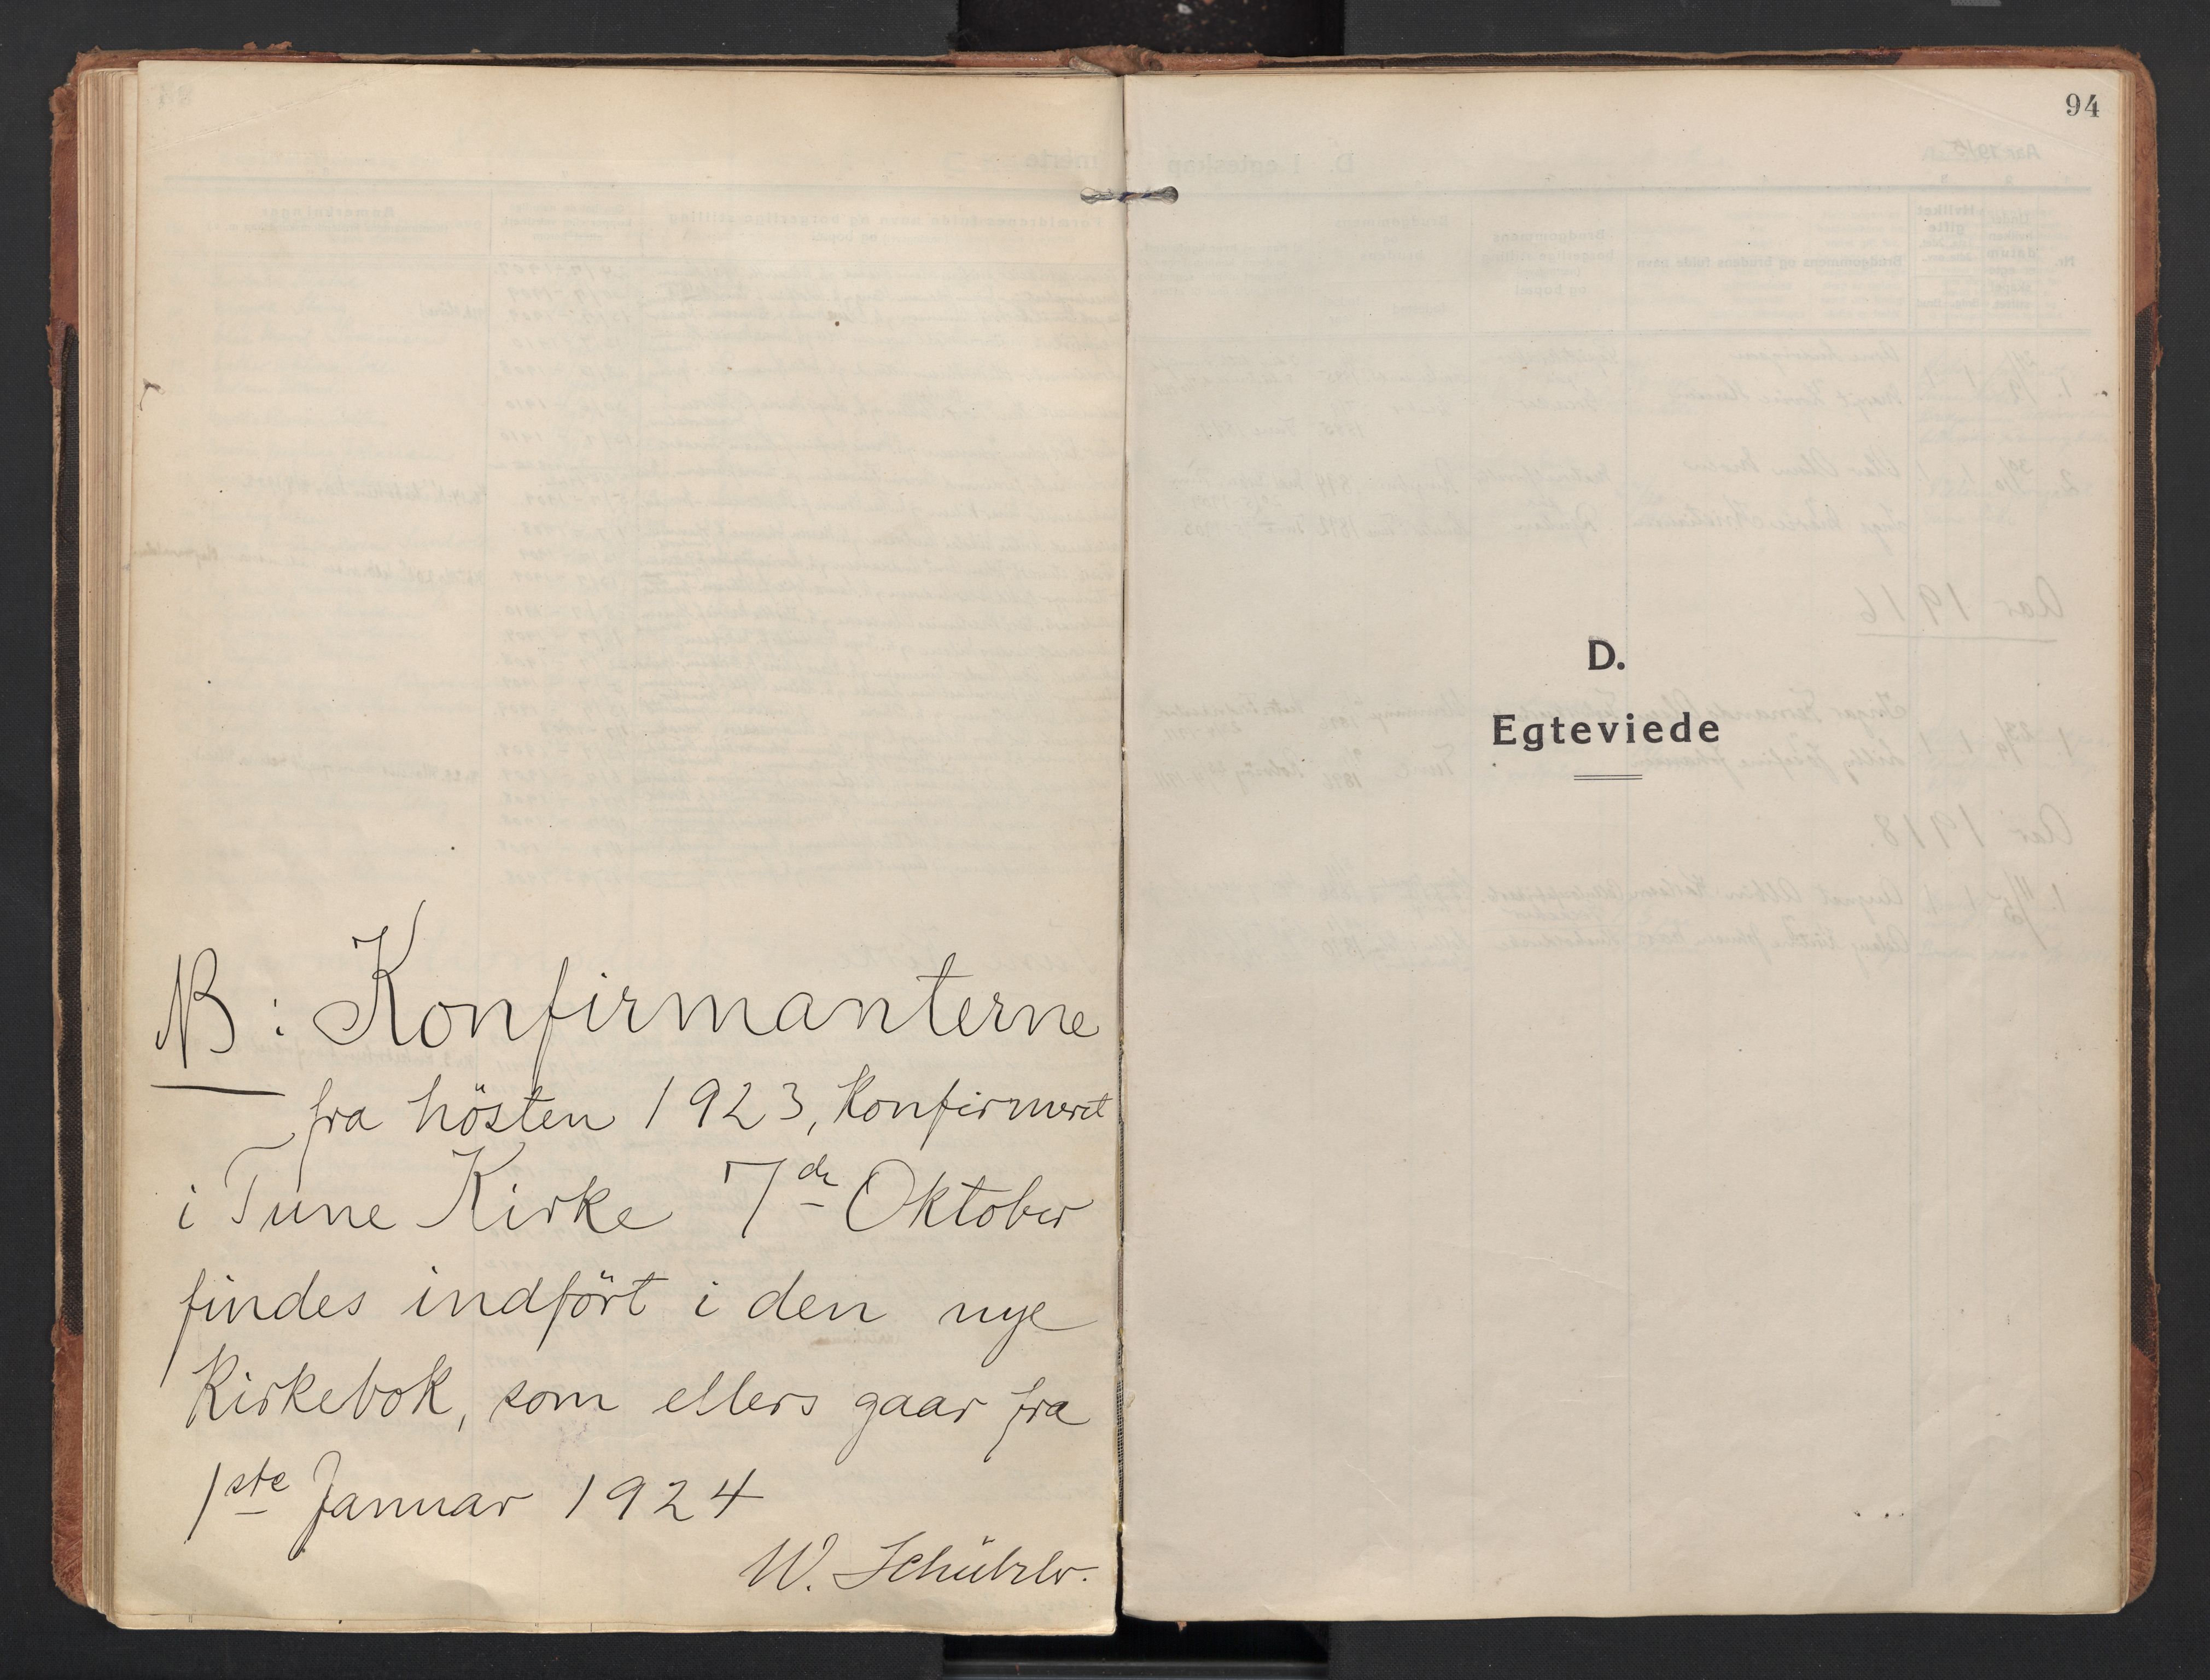 NB: Konfirmanterne
fra hösten 1923, Konfirmeret
i Tune Kirke 7de Oktober
findes indfört i den nye
Kirkebok, som ellers gaar fra
1ste Januar 1924
W. Schübeler.
94
D.
Egteviede